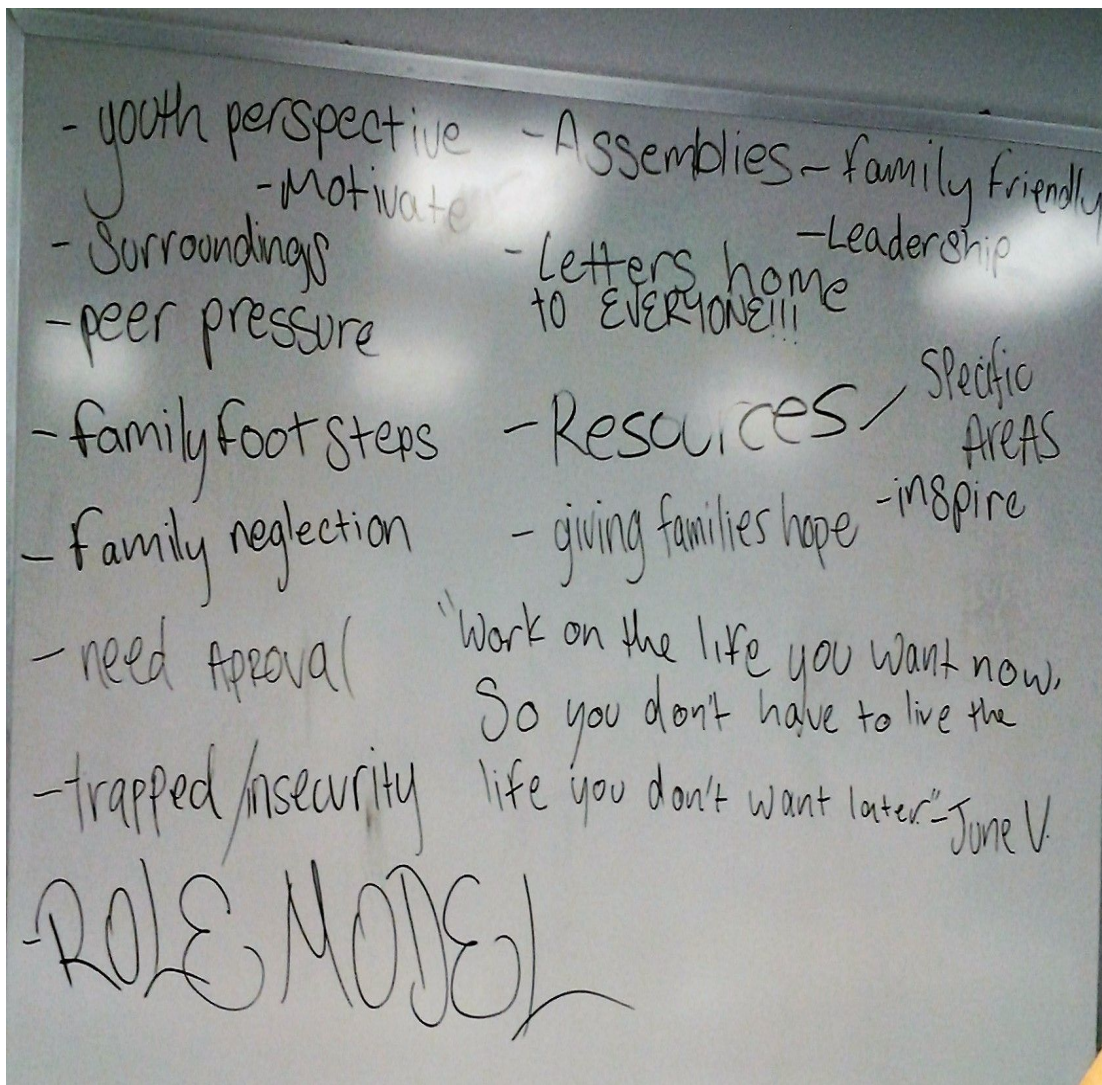 - youth perspective
- Motivate
- Surroundings
- peer pressure
- family foot steps
- family neglection
- need Aproval
- trapped/insecurity
- ROLE MODEL
- Assemblies - family friendly
- Leadership
- Letters home
to EVERYONE!!!
- Resources / Specific
Areas
- giving families hope - inspire
"Work on the life you want now,
So you don't have to live the
life you don't want later" - June V.